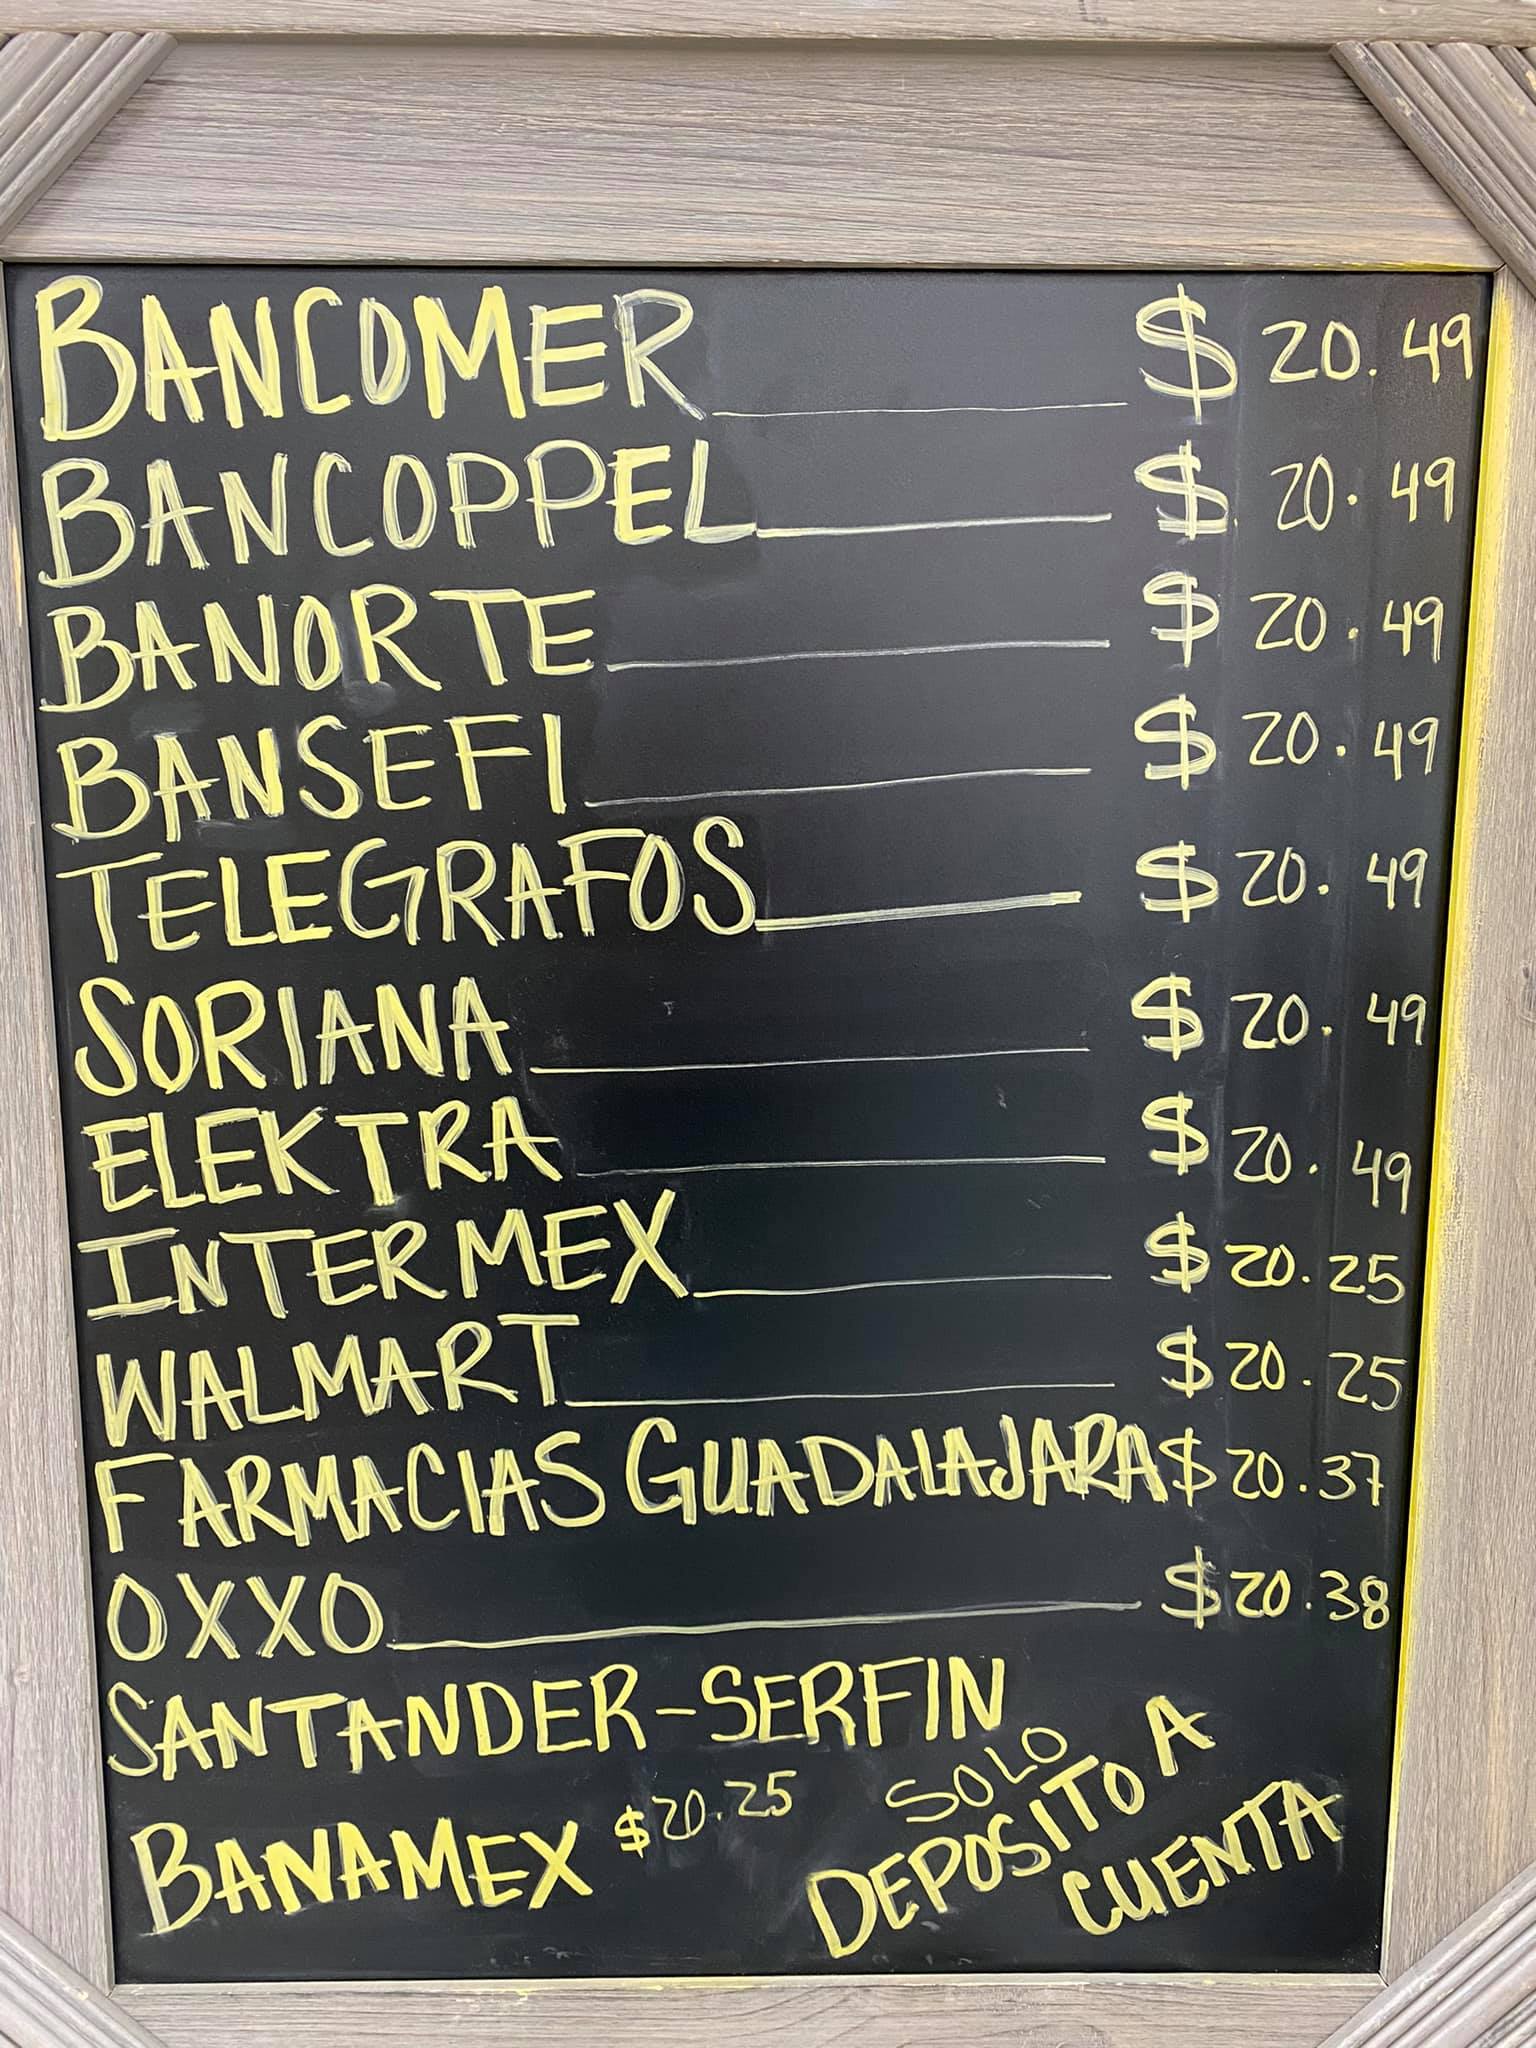 BANCOMER $ 20.49
BANCOPPEL $ 20.49
BANORTE $ 20.49
BANSEFI $ 20.49
TELEGRAFOS $ 20.49
SORIANA $ 20.49
ELEKTRA $ 20.49
INTERMEX $ 20.25
WALMART $ 20.25
FARMACIAS GUADALAJARA $ 20.37
OXXO $ 20.38
SANTANDER-SERFIN
BANAMEX $20.25
SOLO
DEPOSITO A
CUENTA